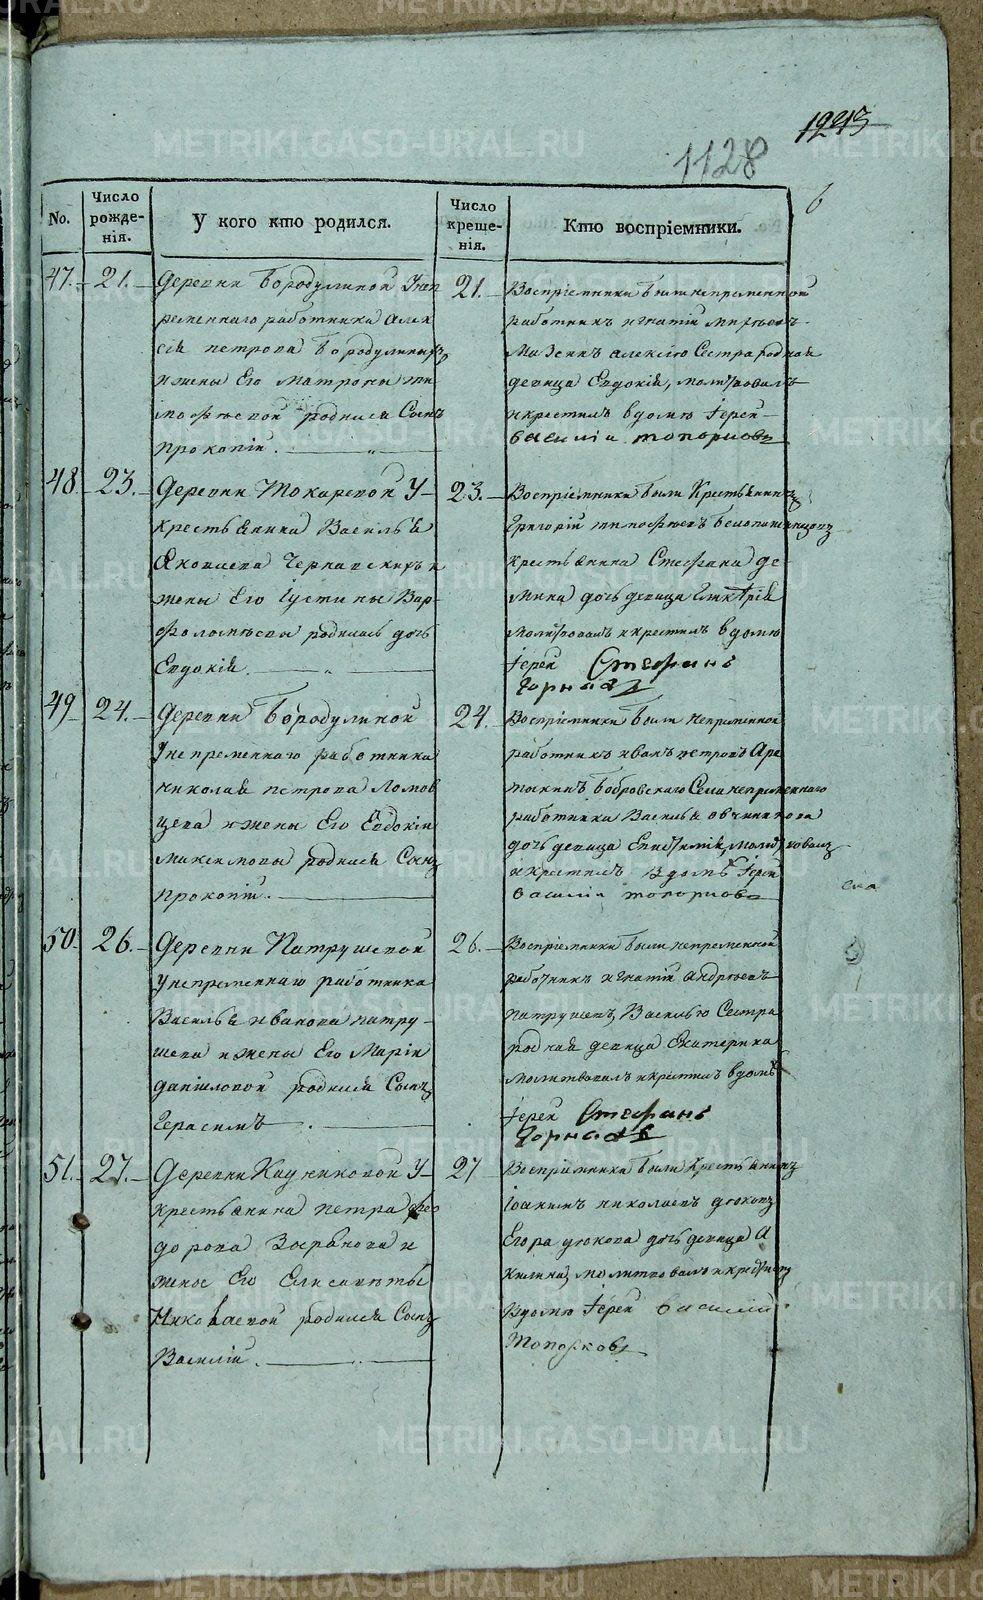 1243
1128
6
No.
Число рожде-нія.
У кого кто родился.
Число креще-нія.
Кто воспріемники.
47. 21.
Деревни Бородулиной Унеп
ременнаго работника Алек
сѣя Петрова Бородулиныхъ
и жены Его Матроны Ти
мофѣевой родился Сынъ
Прокопій.
21.
Воспріемники были непременной
работникъ Игнатій
Алексѣю Сестра родная
девица Евдокія, молитвовалъ
и крестилъ в домѣ Іерей
Василій Топорковъ
48. 23.
Деревни Токаревой У
крестьянина Василья
Яковлева Чернавскихъ и
жены Его Іустины Вар-
фоломѣевы родилась дочь
Евдокія.
23.
Воспріемники были Крестьянинъ
Григорій Тимофѣевъ
крестьянина Стефана Де-
мина дочь девица
Молитвовалъ и крестилъ в домѣ
Іерей Стефанъ
Горныхъ
49 24.
Деревни Бородулиной
Унепременнаго работника
Николая Петрова Ломов
цева и жены Его Евдокіи
Максимовы родился Сынъ
Прокопій.
24.
Воспріемники были непременной
работникъ Иванъ Петровъ Ара
Бобровскаго Села непременнаго
работника Василья Овчинникова
дочь девица молитвовалъ
и крестилъ в домѣ Іерей
Василій Топорковъ
ека
50. 26.
Деревни Патрушевой
унепременнаго работника
Василья Иванова Патру-
шева и жены Его Маріи
Даніиловой родился Сынъ
Герасимъ
26.
Воспріемники были непременной
работникъ Игнатій Андреевъ
Патрушевъ, Василью Сестра
родная девица Екатерина
Молитвовалъ и крестилъ в домѣ
Іерей Стефанъ
Горныхъ
51. 27.
Деревни У
крестьянина Петра Фео
дорова Зырянова и
жены Его Елисаветы
Николаевой родился Сынъ
Василій.
27
Воспріемники были Крестьянинъ
Іоакимъ Николаевъ Дюковъ
Егора Дюкова дочь девица А
килина, молитвовалъ и крестилъ
В домѣ Іерей Василій
Топорковъ
METRIKI.GASO-URAL.RU